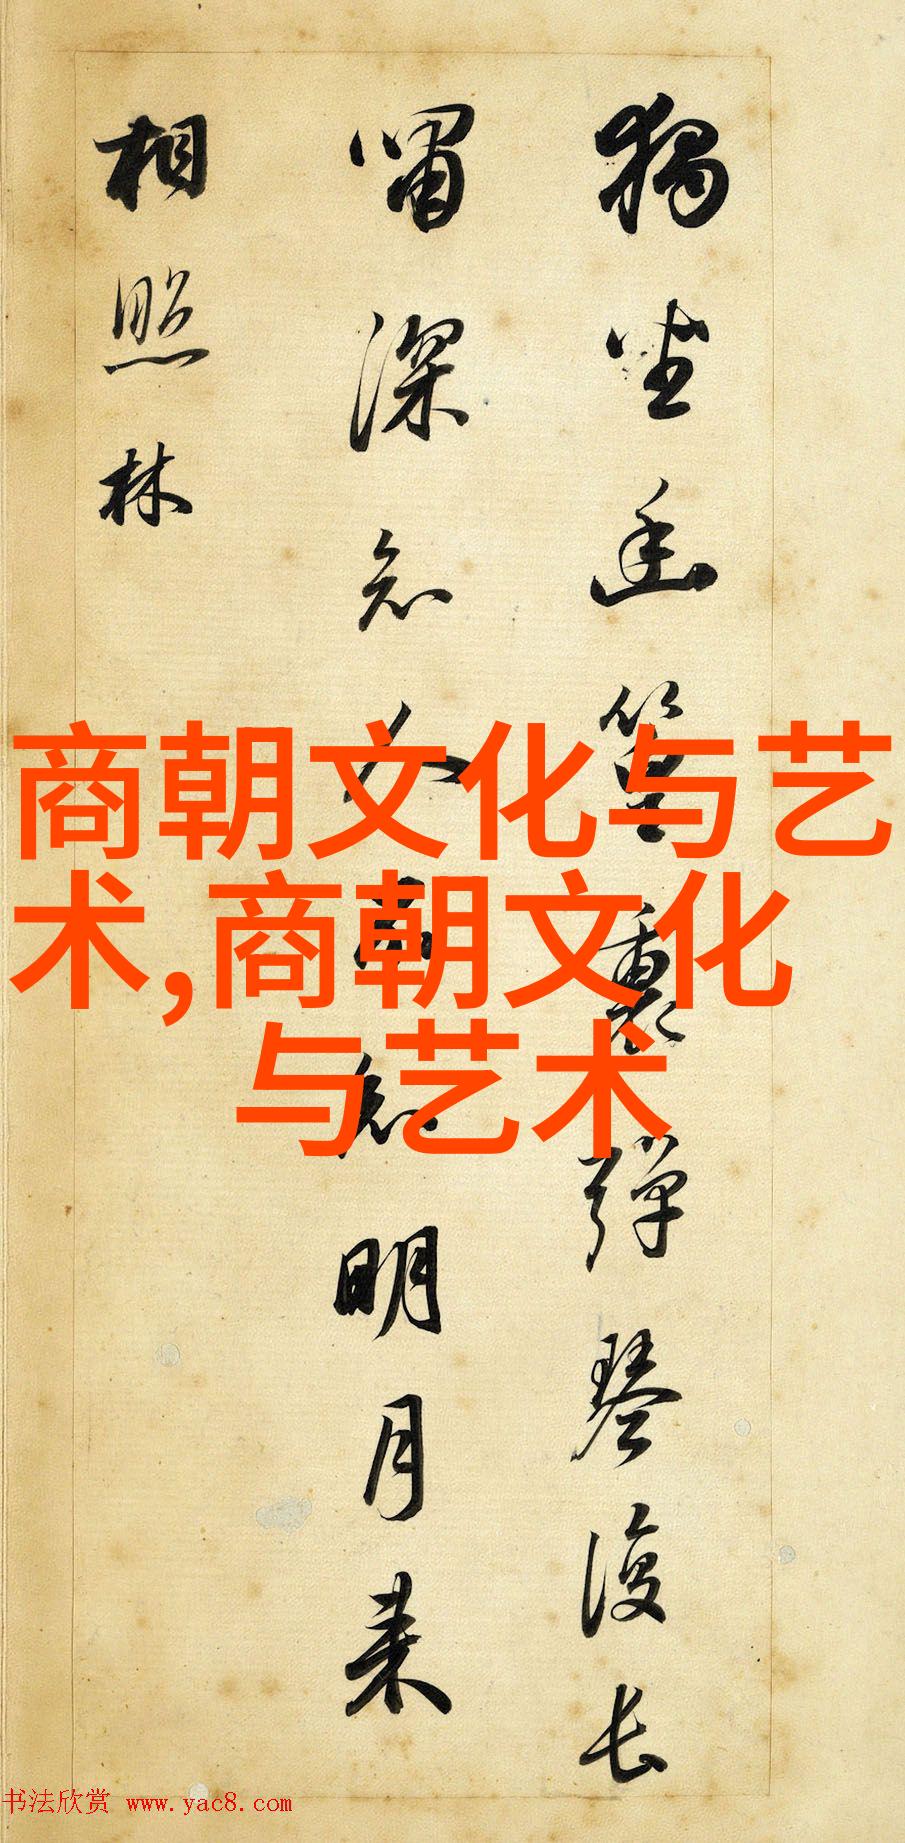 獨坐幽篁裏彈琴復長
嘯深知人不知明月来
相照林
商朝文化与艺
术,商朝文化
与艺术
书法欣赏 www.yac8.com